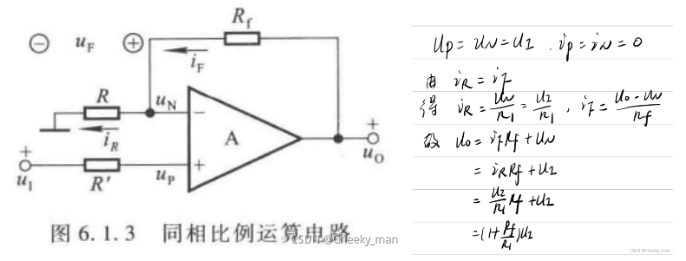 R_f
⊖ u_F ⊕
i_F
R
u_N
−
A
i_R
+
u_O
+
u_I
R'
u_P
+
图 6.1.3 同相比例运算电路
CSDN @Cheeky_man
u_P = u_N = u_I . i_P = i_N = 0
由 i_R = i_f
得 i_R = u_N/R_1 = u_I/R_1 , i_f = (u_o - u_N)/R_f
故 u_o = i_f R_f + u_N
= i_R R_f + u_I
= u_I/R_1 R_f + u_I
= (1 + R_f/R_1) u_I
CSDN @Cheeky_man